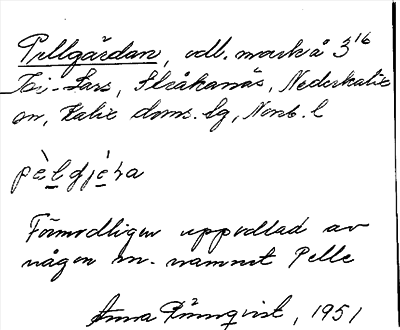 Pellgärdan, odl. mark å 3¹⁶
Per-Lars, Stråkanäs, Nederkalix
sn, Kalix doms. lg, Norrb. l
pèl gjè ra
Förmodligen uppodlad av
någon m. namnet Pelle
Anna Rönnqvist, 1951